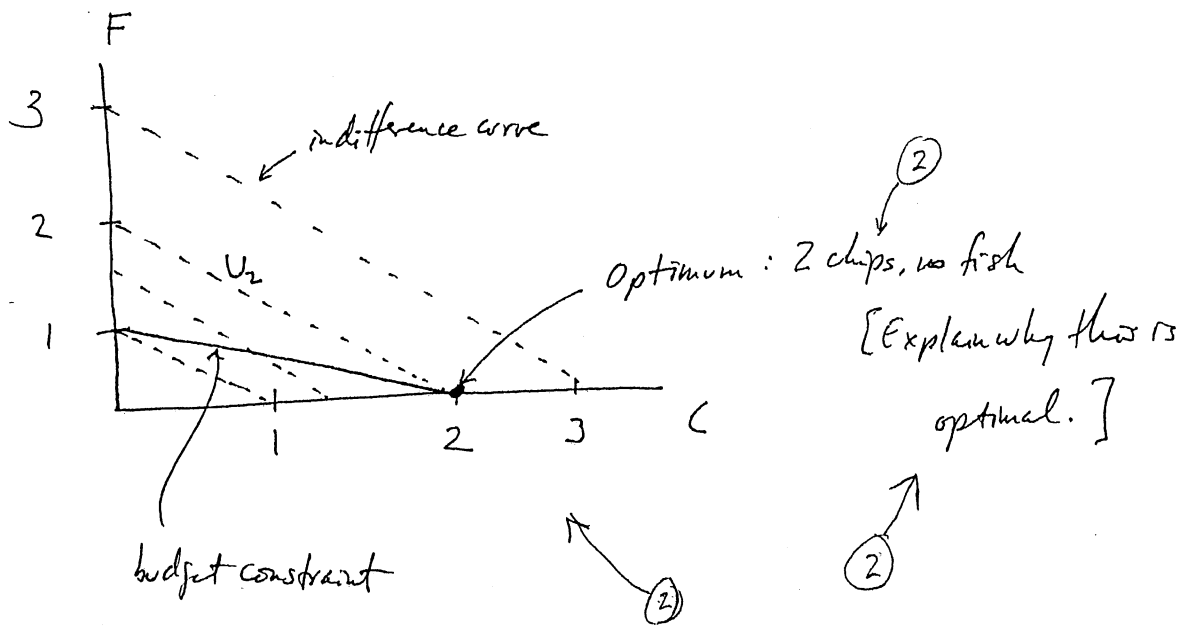 F
3
indifference curve
2
2
U₂
Optimum : 2 chips, no fish
[Explain why this is
optimal. ]
1
1
2
3
C
budget constraint
2
2